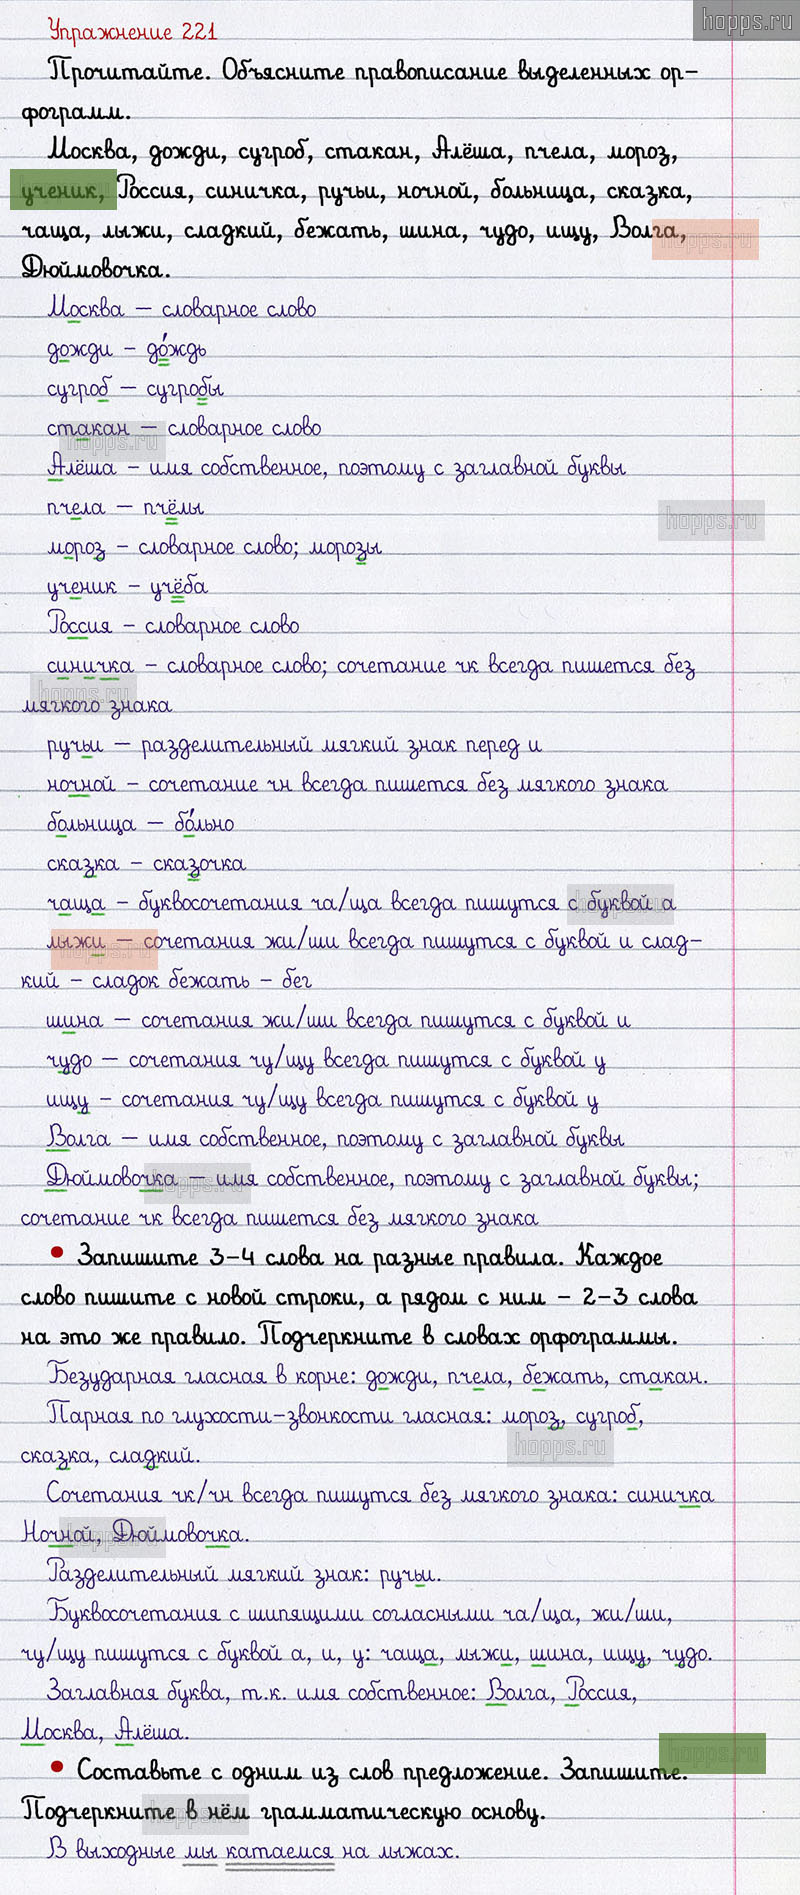 hopps.ru
Упражнение 221
Прочитайте. Объясните правописание выделенных ор-
фограмм.
Москва, дожди, сугроб, стакан, Алёша, пчела, мороз,
ученик, Россия, синичка, ручьи, ночной, больница, сказка,
чаща, лыжи, сладкий, бежать, шина, чудо, ищу, Волга,
hopps.ru
Дюймовочка.
Москва – словарное слово
дожди – до́ждь
сугроб – сугробы
стакан – словарное слово
hopps.ru
Алёша – имя собственное, поэтому с заглавной буквы
пчела – пчёлы
hopps.ru
мороз – словарное слово; морозы
ученик – учёба
Россия – словарное слово
синичка – словарное слово; сочетание чк всегда пишется без
hopps.ru
мягкого знака
ручьи – разделительный мягкий знак перед и
ночной – сочетание чн всегда пишется без мягкого знака
больница – бо́льно
сказка – сказочка
чаща – буквосочетания ча/ща всегда пишутся с буквой а
hopps.ru
лыжи – сочетания жи/ши всегда пишутся с буквой и слад-
hopps.ru
кий – сладок бежать – бег
шина – сочетания жи/ши всегда пишутся с буквой и
чудо – сочетания чу/щу всегда пишутся с буквой у
ищу – сочетания чу/щу всегда пишутся с буквой у
Волга – имя собственное, поэтому с заглавной буквы
Дюймовочка – имя собственное, поэтому с заглавной буквы;
hopps.ru
сочетание чк всегда пишется без мягкого знака
• Запишите 3–4 слова на разные правила. Каждое
слово пишите с новой строки, а рядом с ним – 2–3 слова
на это же правило. Подчеркните в словах орфограммы.
Безударная гласная в корне: дожди, пчела, бежать, стакан.
Парная по глухости-звонкости гласная: мороз, сугроб,
hopps.ru
сказка, сладкий.
Сочетания чк/чн всегда пишутся без мягкого знака: синичка
Ночнай, Дюймовочка.
hopps.ru
Разделительный мягкий знак: ручьи.
Буквосочетания с шипящими согласными ча/ща, жи/ши,
чу/щу пишутся с буквой а, и, у: чаща, лыжи, шина, ищу, чудо.
Заглавная буква, т.к. имя собственное: Волга, Россия,
Москва, Алёша.
hopps.ru
• Составьте с одним из слов предложение. Запишите.
Подчеркните в нём грамматическую основу.
hopps.ru
В выходные мы катаемся на лыжах.